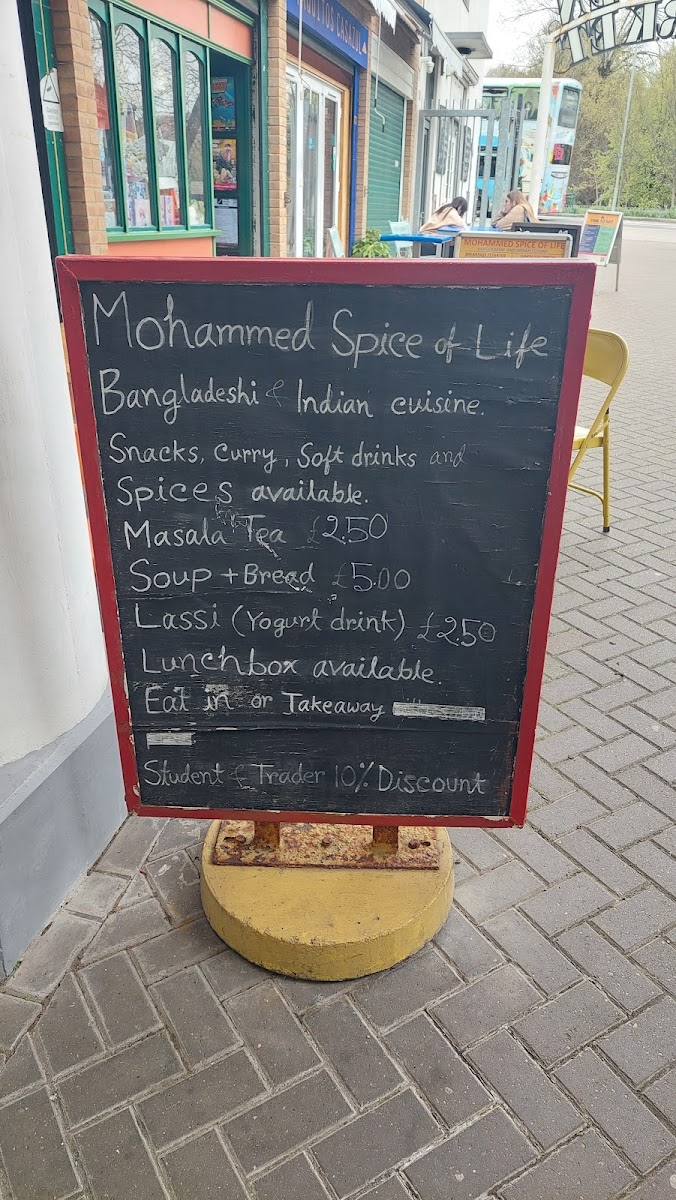 MOHAMMED SPICE OF LIFE
Mohammed Spice of Life
Bangladeshi & Indian cuisine.
Snacks, Curry, Soft drinks and
Spices available.
Masala Tea £2.50
Soup + Bread £5.00
Lassi (Yogurt drink) £2.50
Lunchbox available.
Eat in or Takeaway
Student & Trader 10% Discount